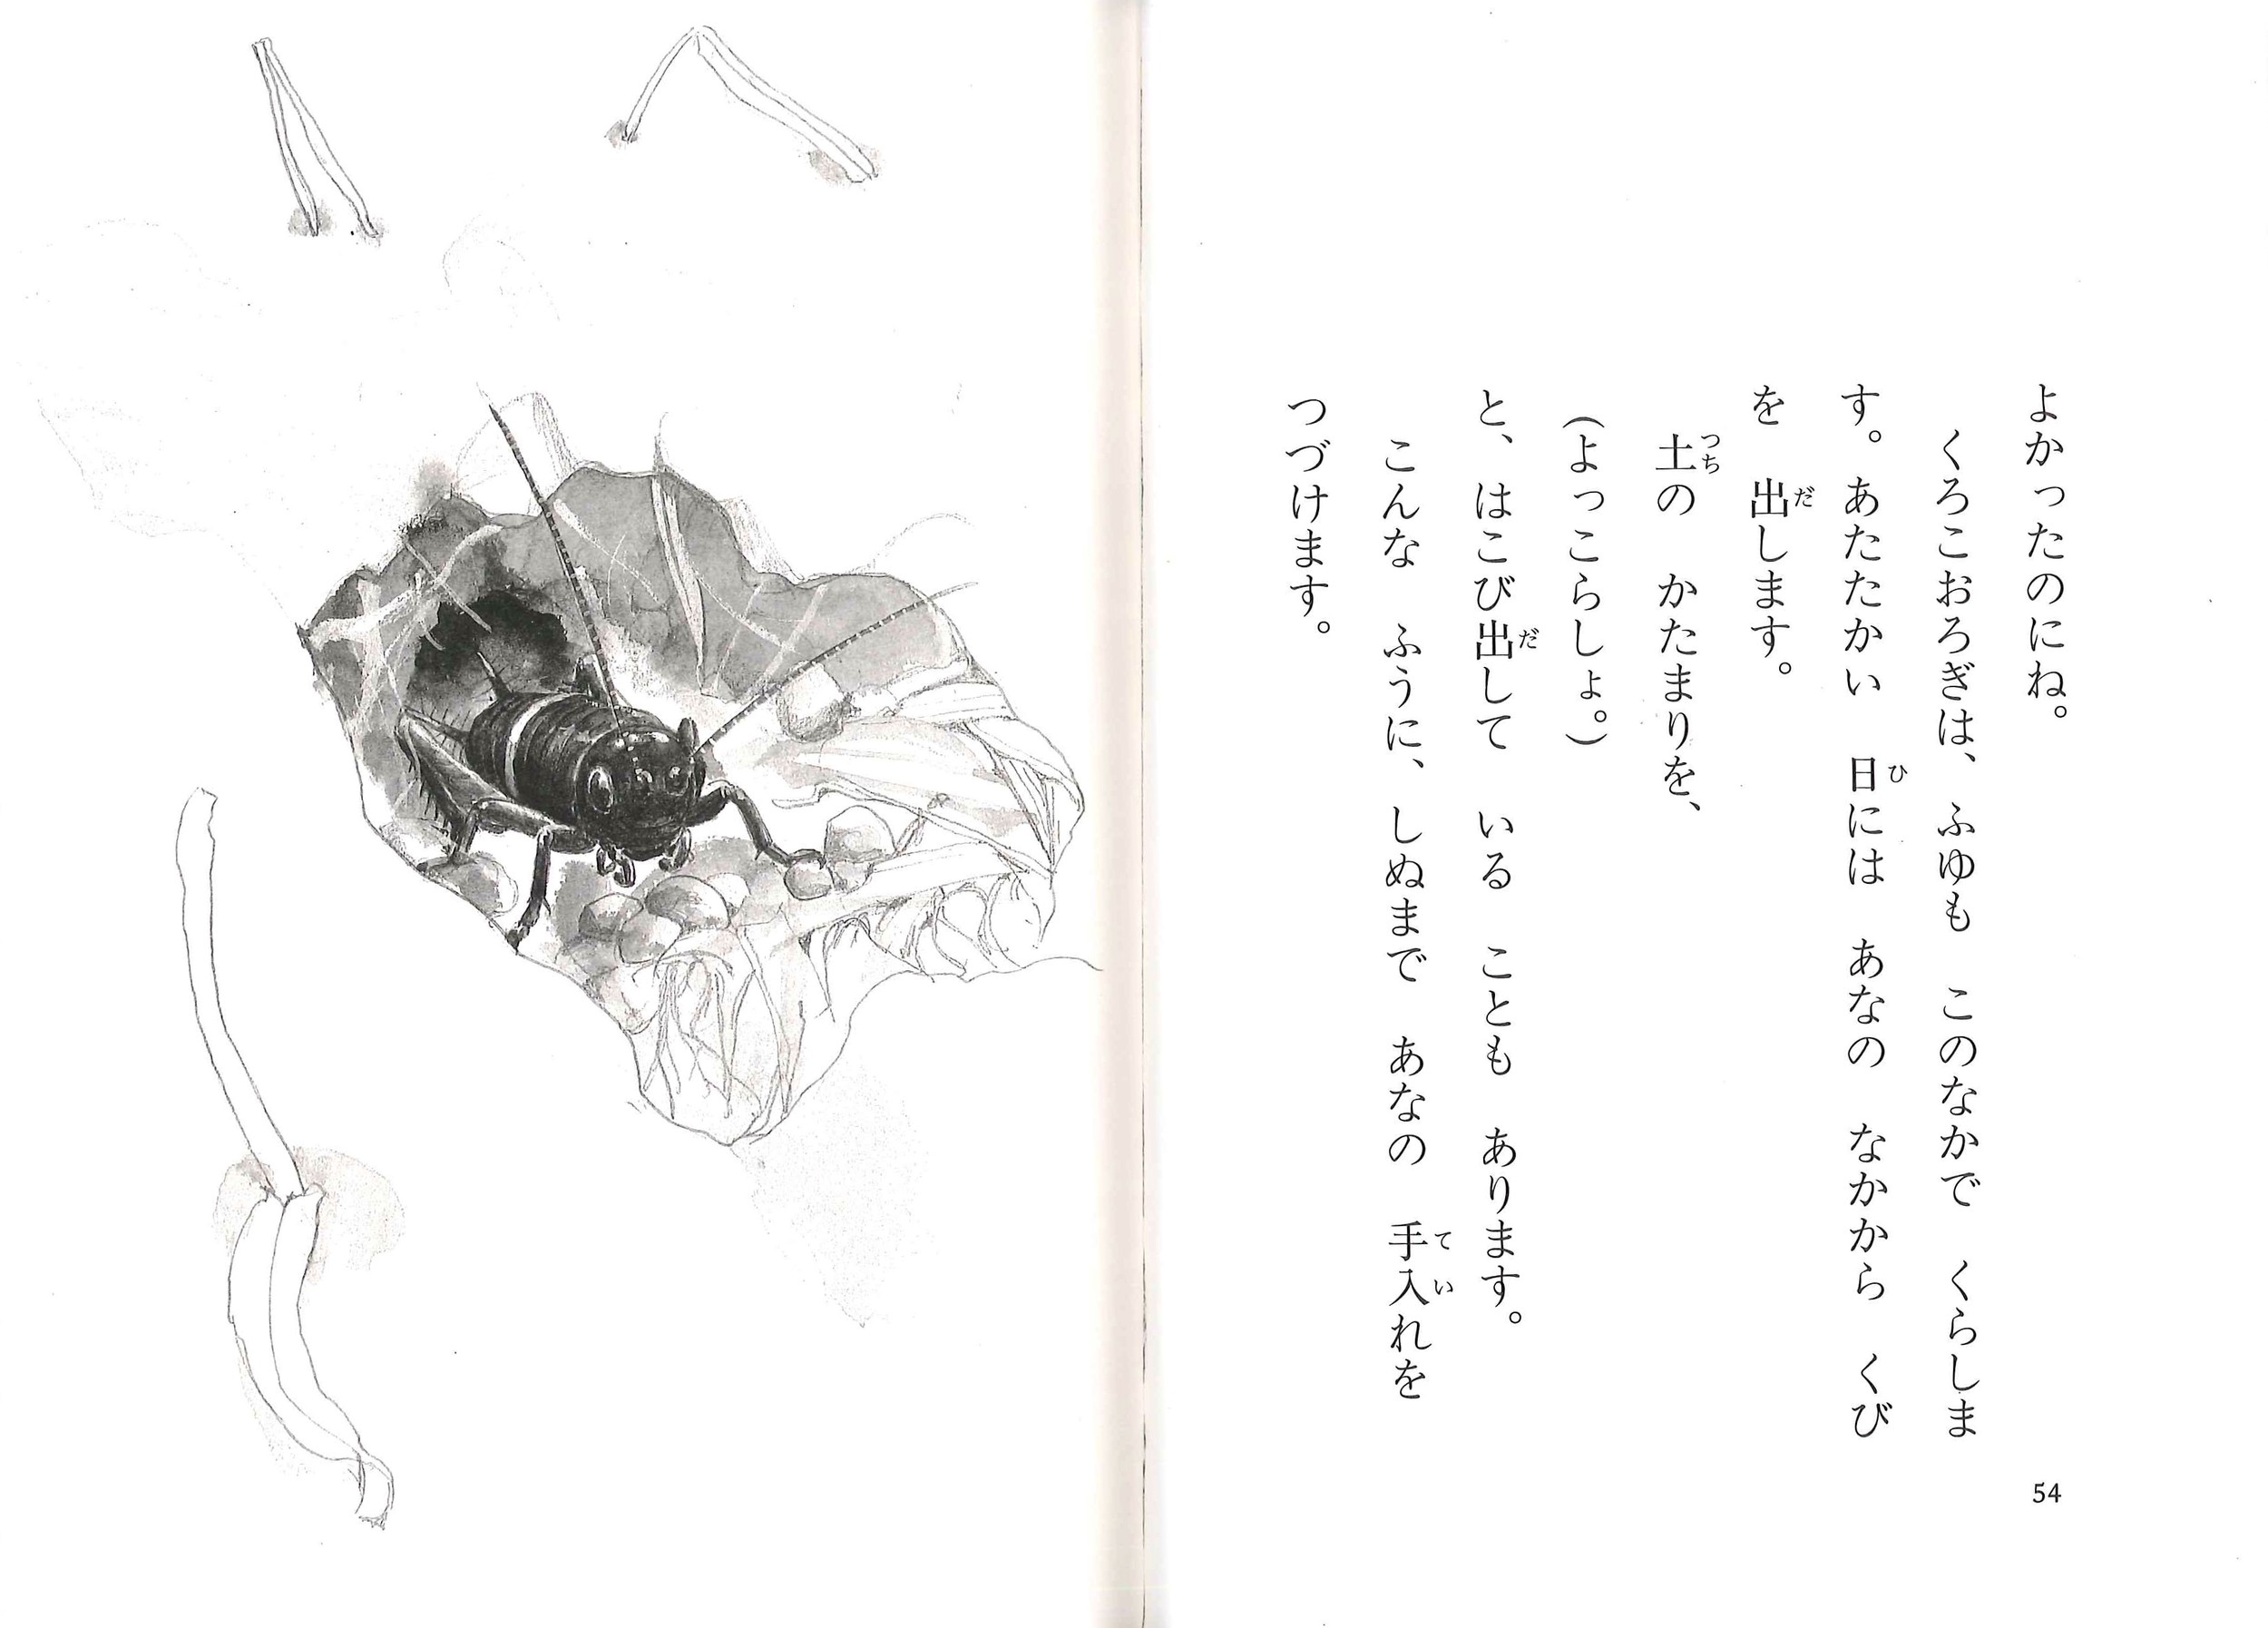 よかったのにね。
　くろこおろぎは、ふゆも　このなかで　くらしま
す。あたたかい　日には　あなの　なかから　くび
を　出します。
　土の　かたまりを、
（よっこらしょ。）
と、はこび出して　いる　ことも　あります。
　こんな　ふうに、しぬまで　あなの　手入れを
つづけます。
54